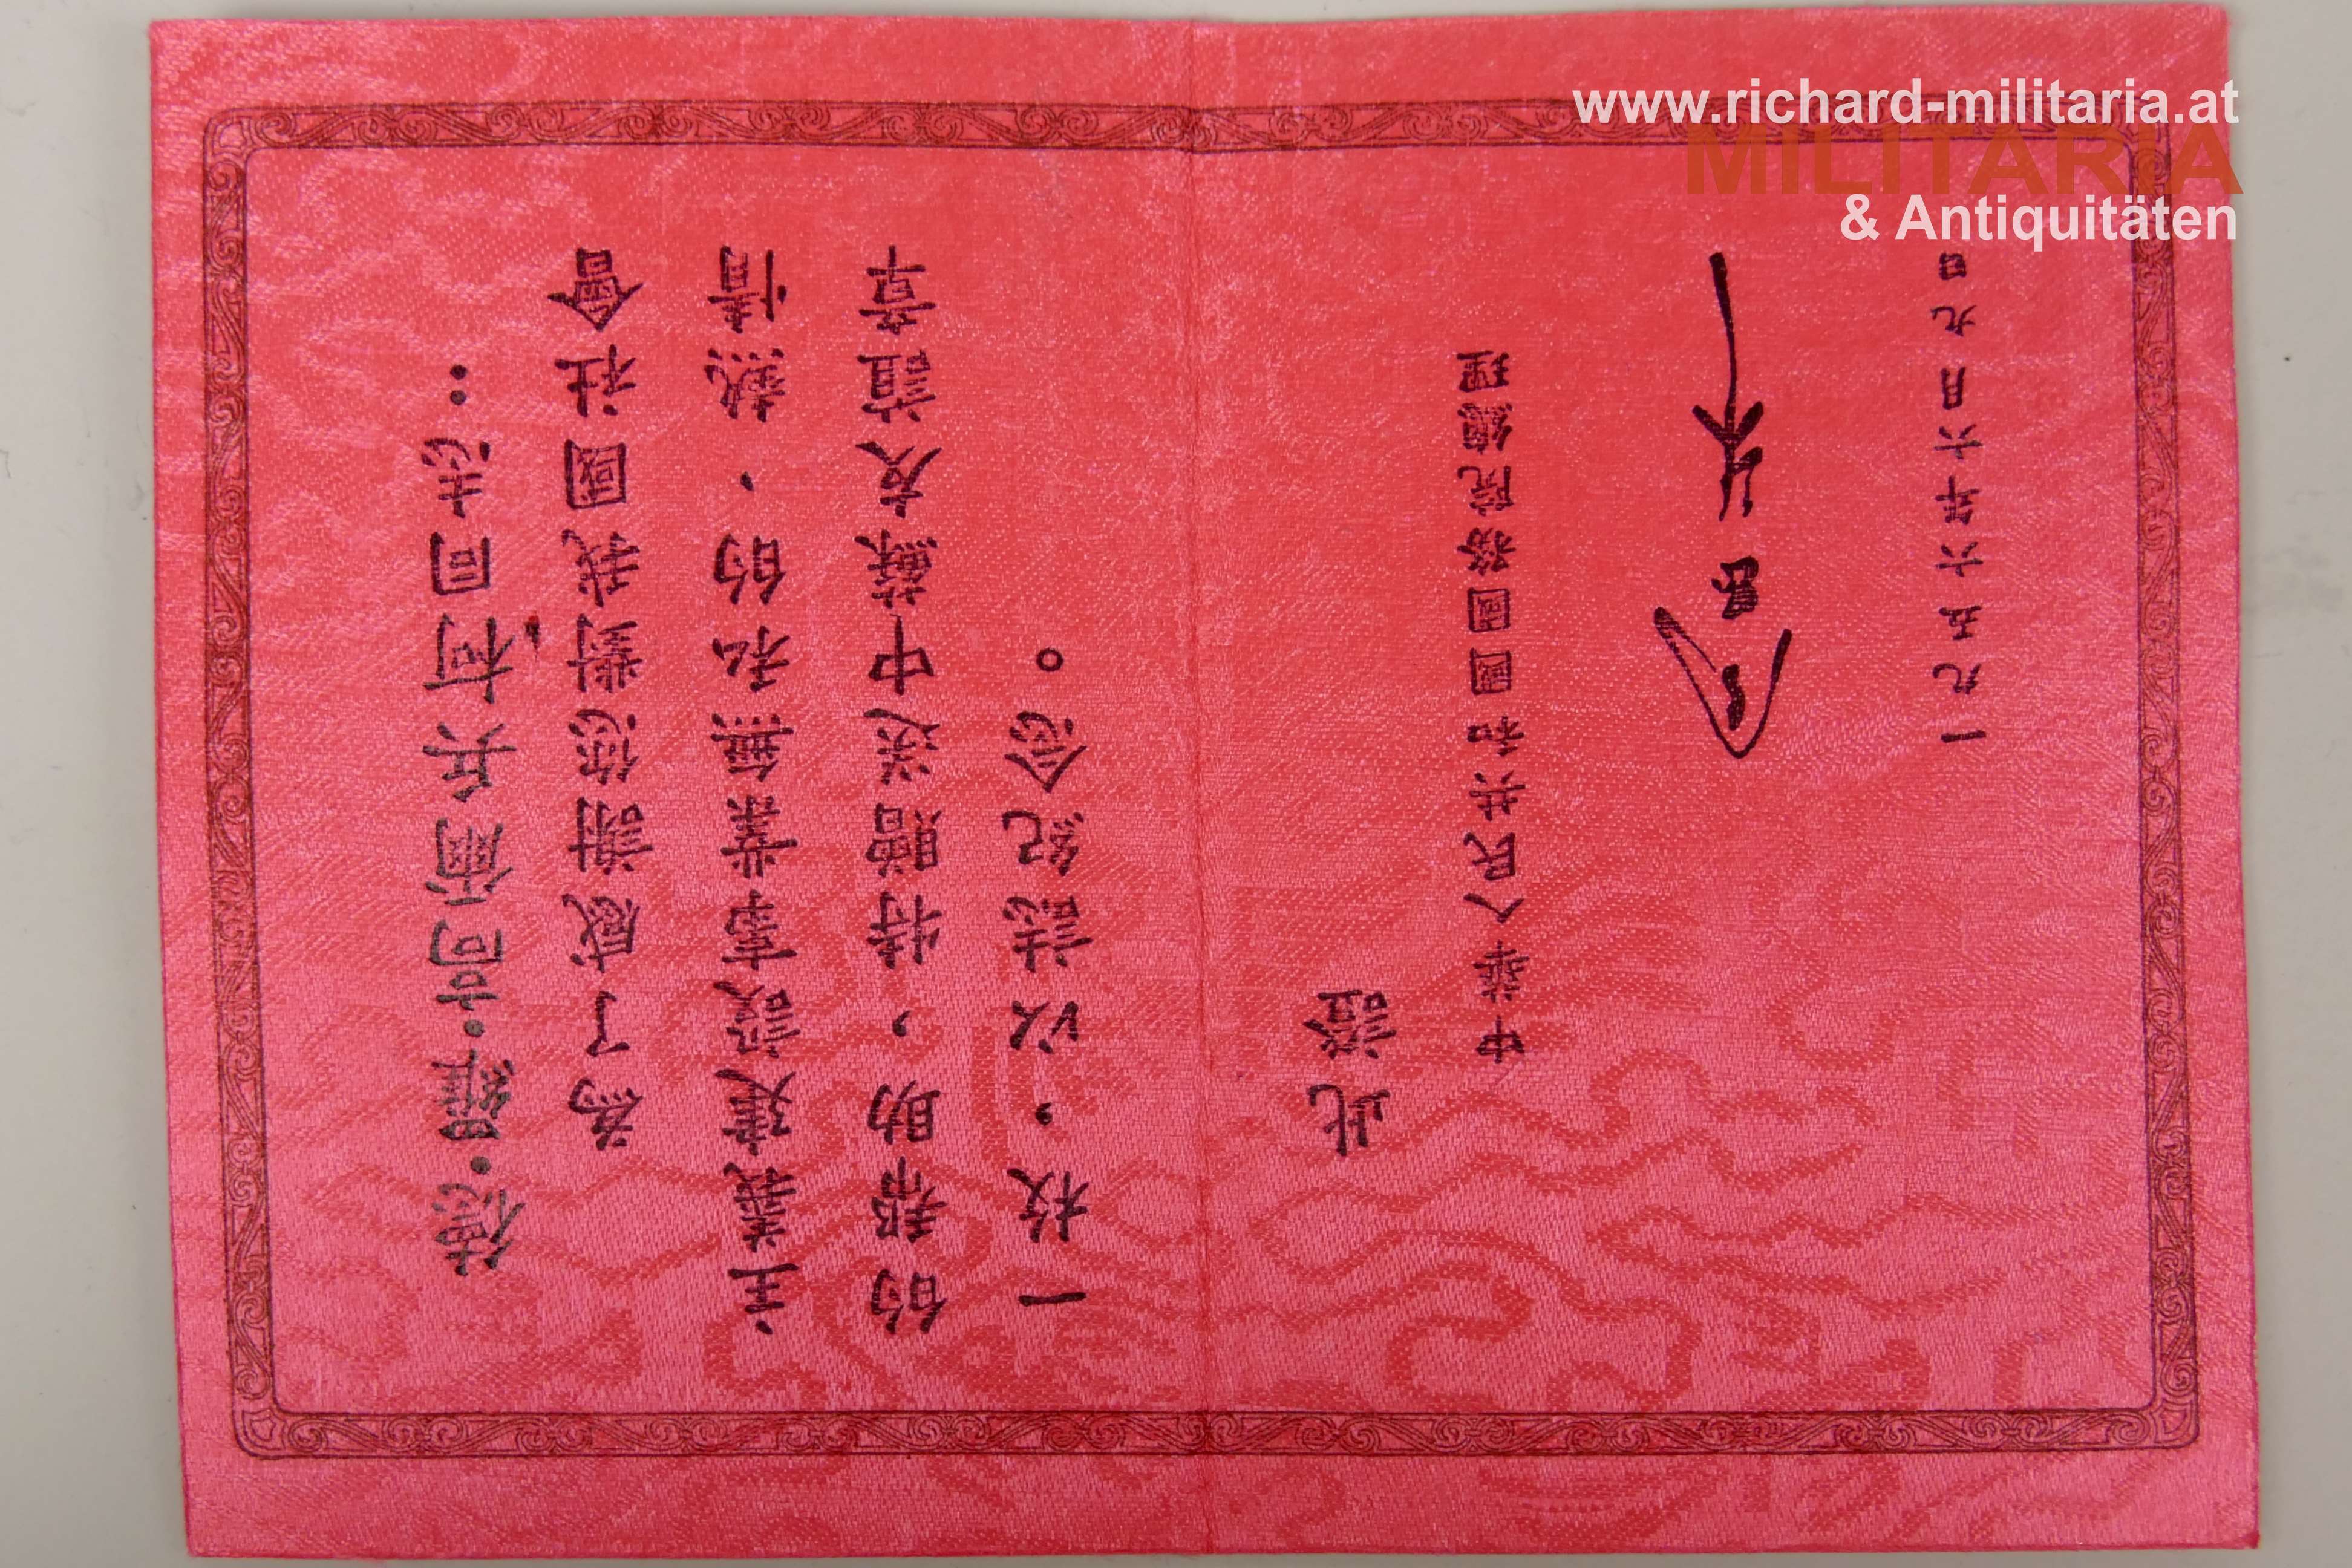 德·羅·哥爾兵柯同志：
為了感謝您對我國社會
主義建設事業無私的、熱情
的帮助，特贈送中蘇友誼章
一枚，以誌紀念。
此證
中華人民共和國國務院總理
周恩來
一九五六年六月九日
www.richard-militaria.at
MILITARIA
& Antiquitäten